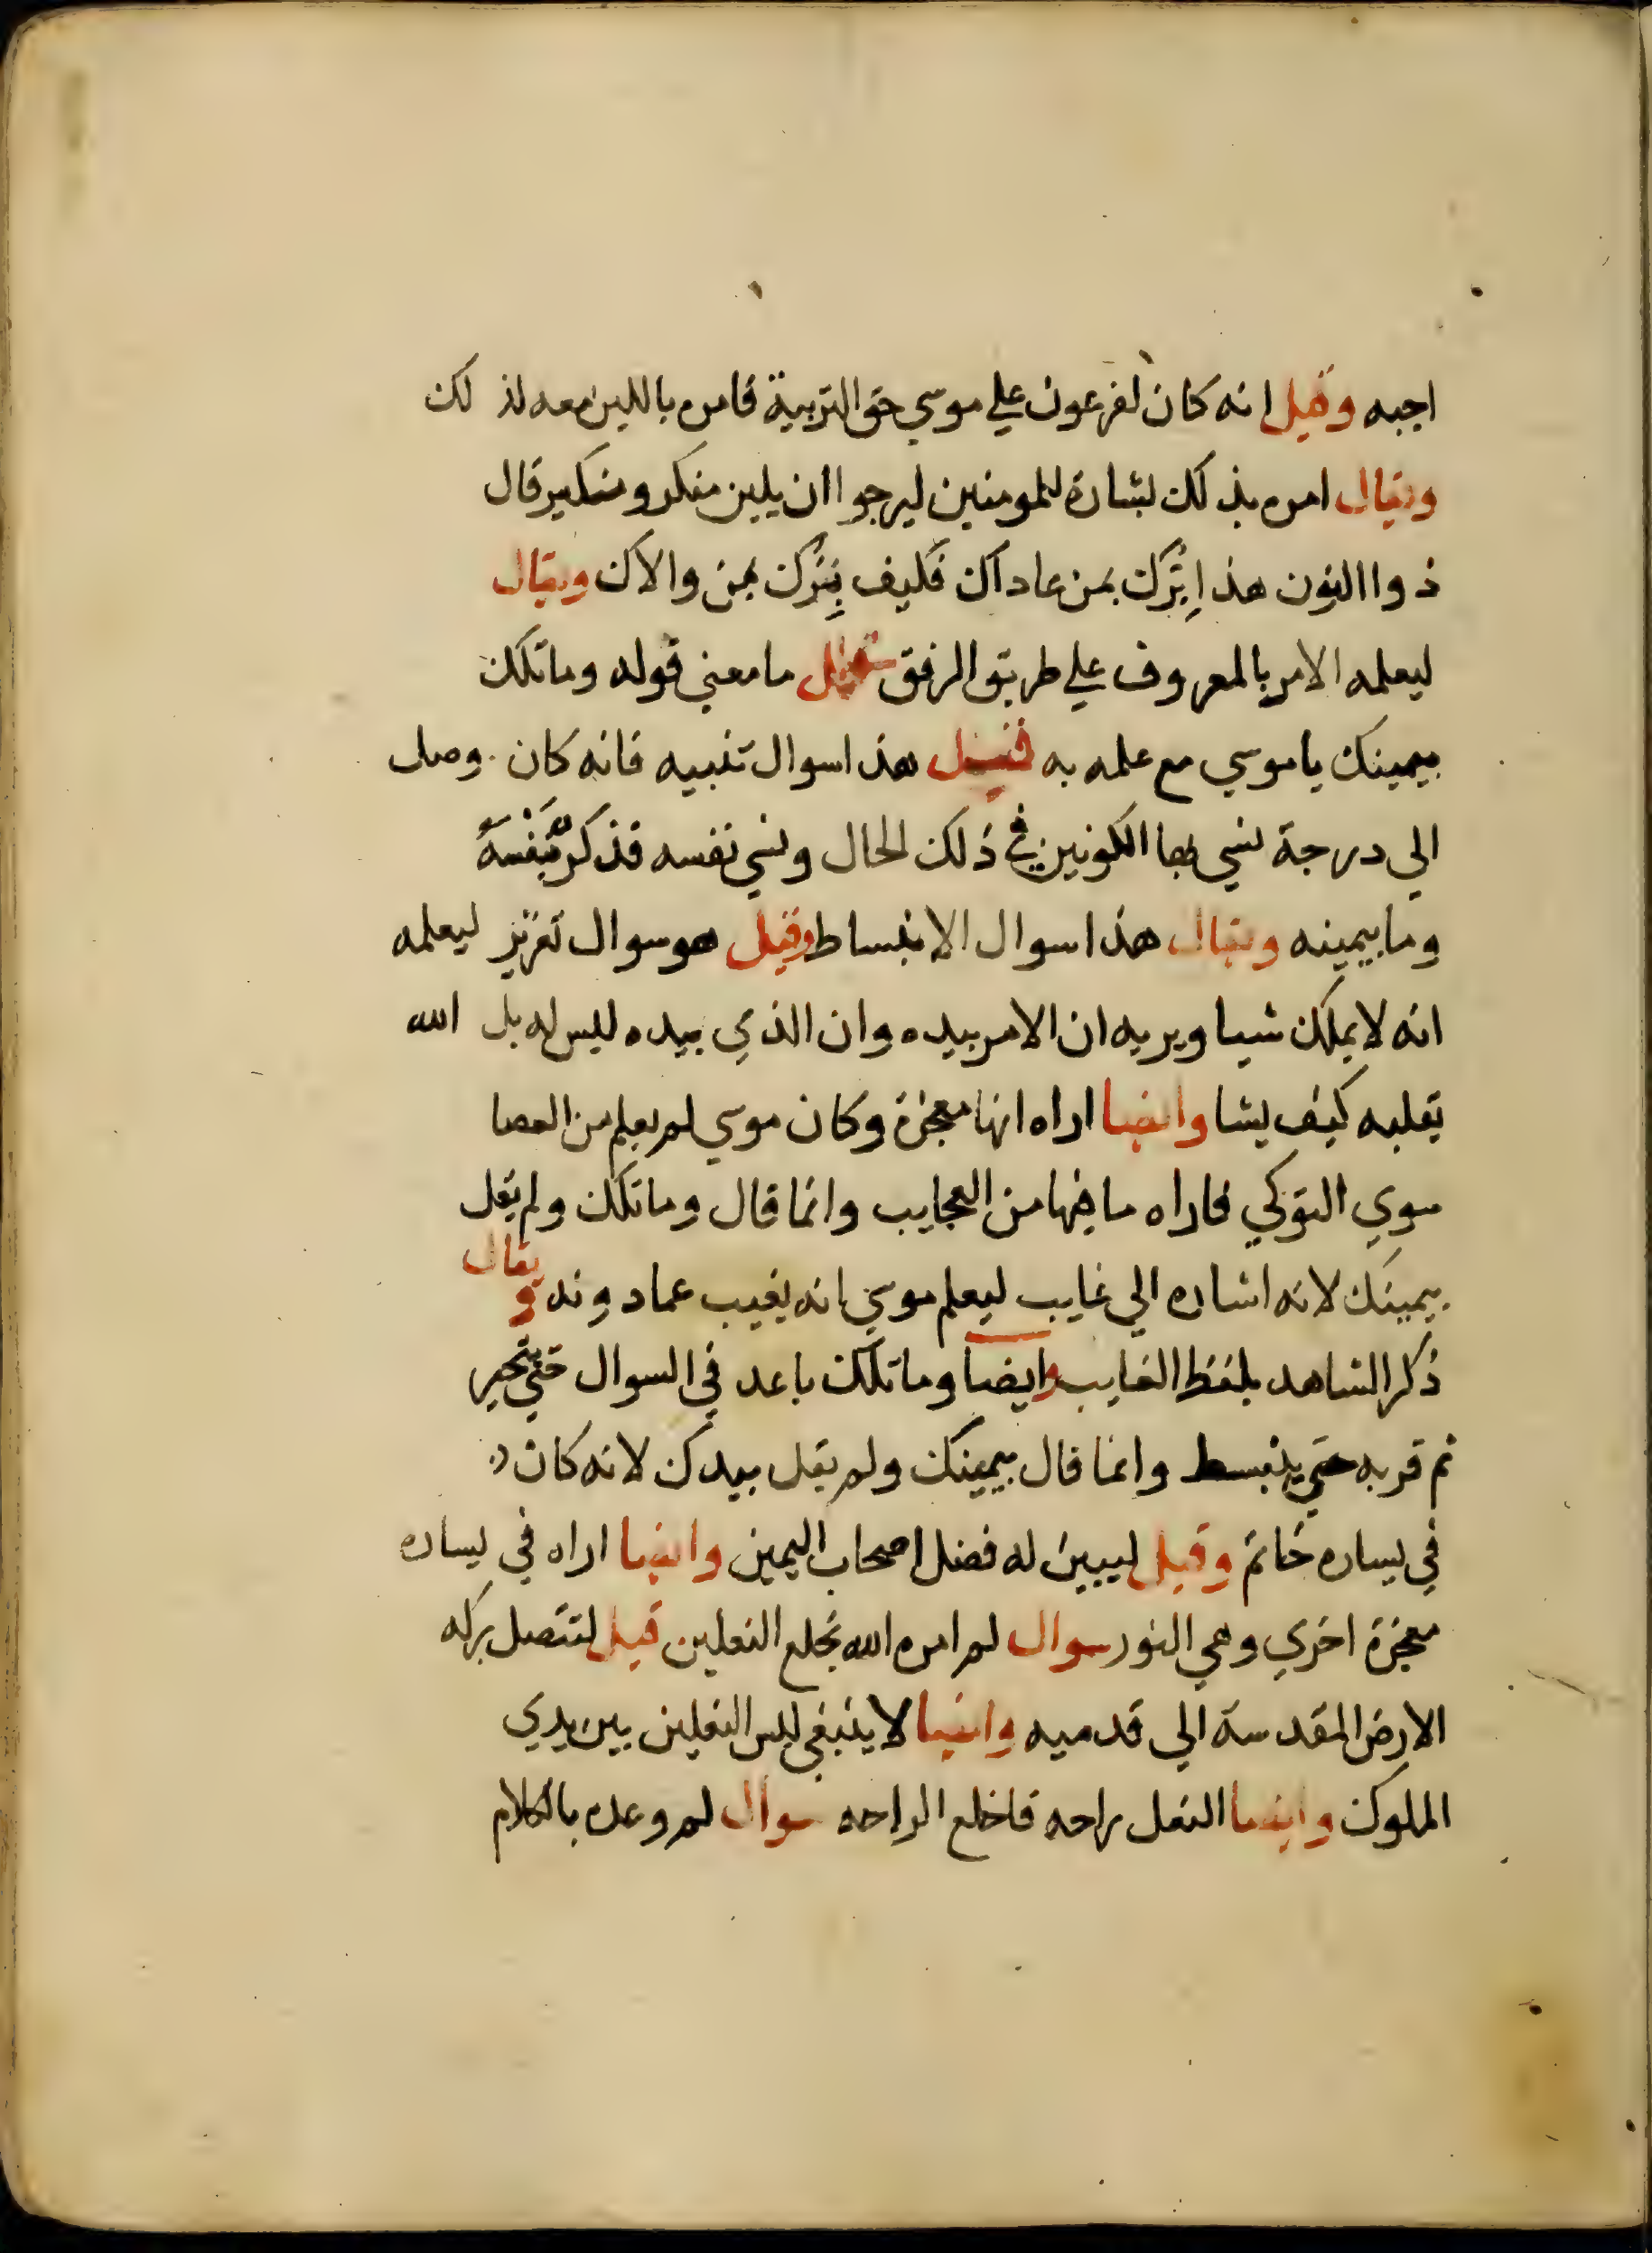 اجبه وقيل انه كان لفرعون علي موسي حق التربية فامره باللين معه لذلك
ويقال امره بذلك بشارة للمومنين ليرجوا ان يلين منكر ونكير قال
ذوا النون هذا برك بمن عاداك فكيف برك بمن والاك ويقال
ليعلمه الامر بالمعروف علي طريق الرفق ما معني قوله وما تلك
بيمينك يا موسي مع علمه به فقيل هذا سوال تنبيه فانه كان وصل
الي درجة نسي بها الكونين في ذلك الحال ونسي نفسه فذكره نفسه
وما بيمينه ويقال هذا سوال الانبساط وقيل هو سوال تقرير ليعلمه
انه لا يملك شيا ويريه ان الامر بيده وان الذي بيده ليس له بل الله
يقلبه كيف يشا وايضا اراه انها معجزة وكان موسي لم يعلم من العصا
سوي التوكي فاراه ما فيها من العجايب وانما قال وما تلك ولم يقل
بيمينك لانه اشاره الي غايب ليعلم موسي انه يغيب عما دونه ويقال
ذكر الشاهد بلفظ الغايب وايضا وما تلك باعد في السوال حتي تحير
ثم قربه حتي ينبسط وانما قال بيمينك ولم يقل بيدك لانه كان
في يساره خاتم وقيل ليبين له فضل اصحاب اليمين وايضا اراه في يساره
معجزة اخري وهي النور سوال لم امره الله بخلع النعلين قيل لتتصل بركه
الارض المقدسة الي قدميه وايضا لا ينبغي لبس النعلين بين يدي
الملوك وايضا النعل راحه فاخلع الراحه سوال لم وعده بالكلام